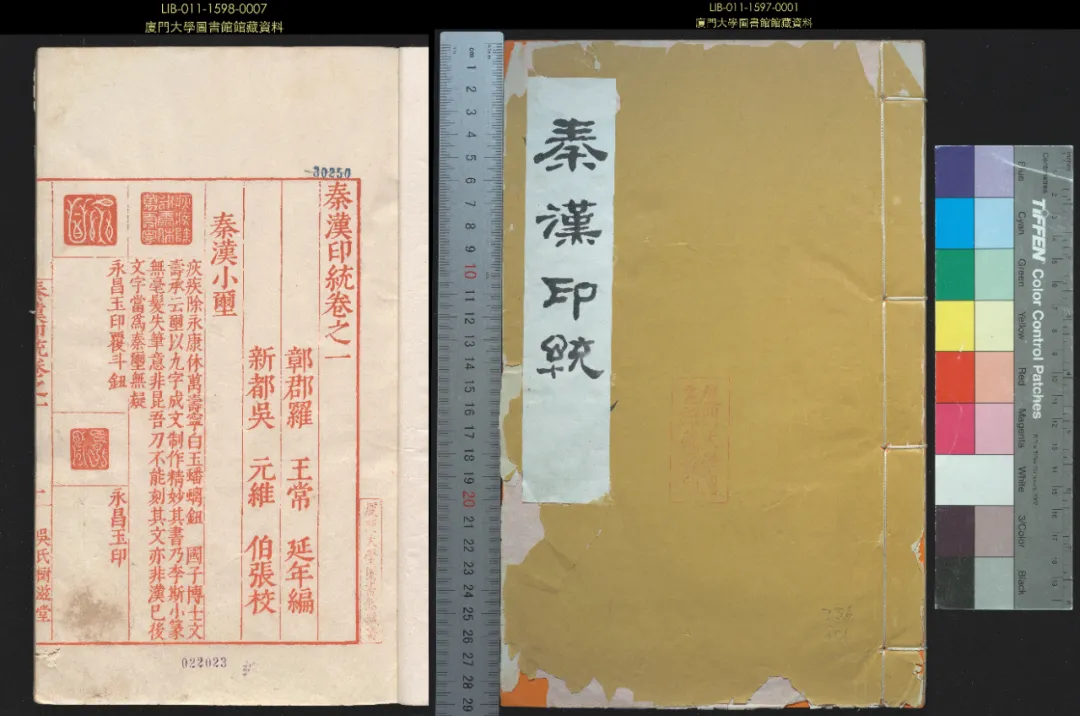 LIB-011-1598-0007
廈門大學圖書館館藏資料
30250
秦漢印統卷之一
鄣郡羅 王常 延年編
新都吳 元維 伯張校
秦漢小璽
疢疾除永康休萬壽寧白玉蟠螭鈕 國子博士文
壽承云璽以九字成文制作精妙其書乃李斯小篆
無毫髮失筆意非昆吾刀不能刻其文亦非漢已後
文字當爲秦璽無疑
永昌玉印覆斗鈕
永昌玉印
秦漢印統卷之一
一
吳氏樹滋堂
022023
LIB-011-1597-0001
廈門大學圖書館館藏資料
秦漢印統
cm 1 2 3 4 5 6 7 8 9 10 11 12 13 14 15 16 17 18 19 20 21 22 23 24 25 26 27 28 29
TIFFEN Color Control Patches
Centimetres
Blue
Cyan
Green
Yellow
Red
Magenta
White
3/Color
Black